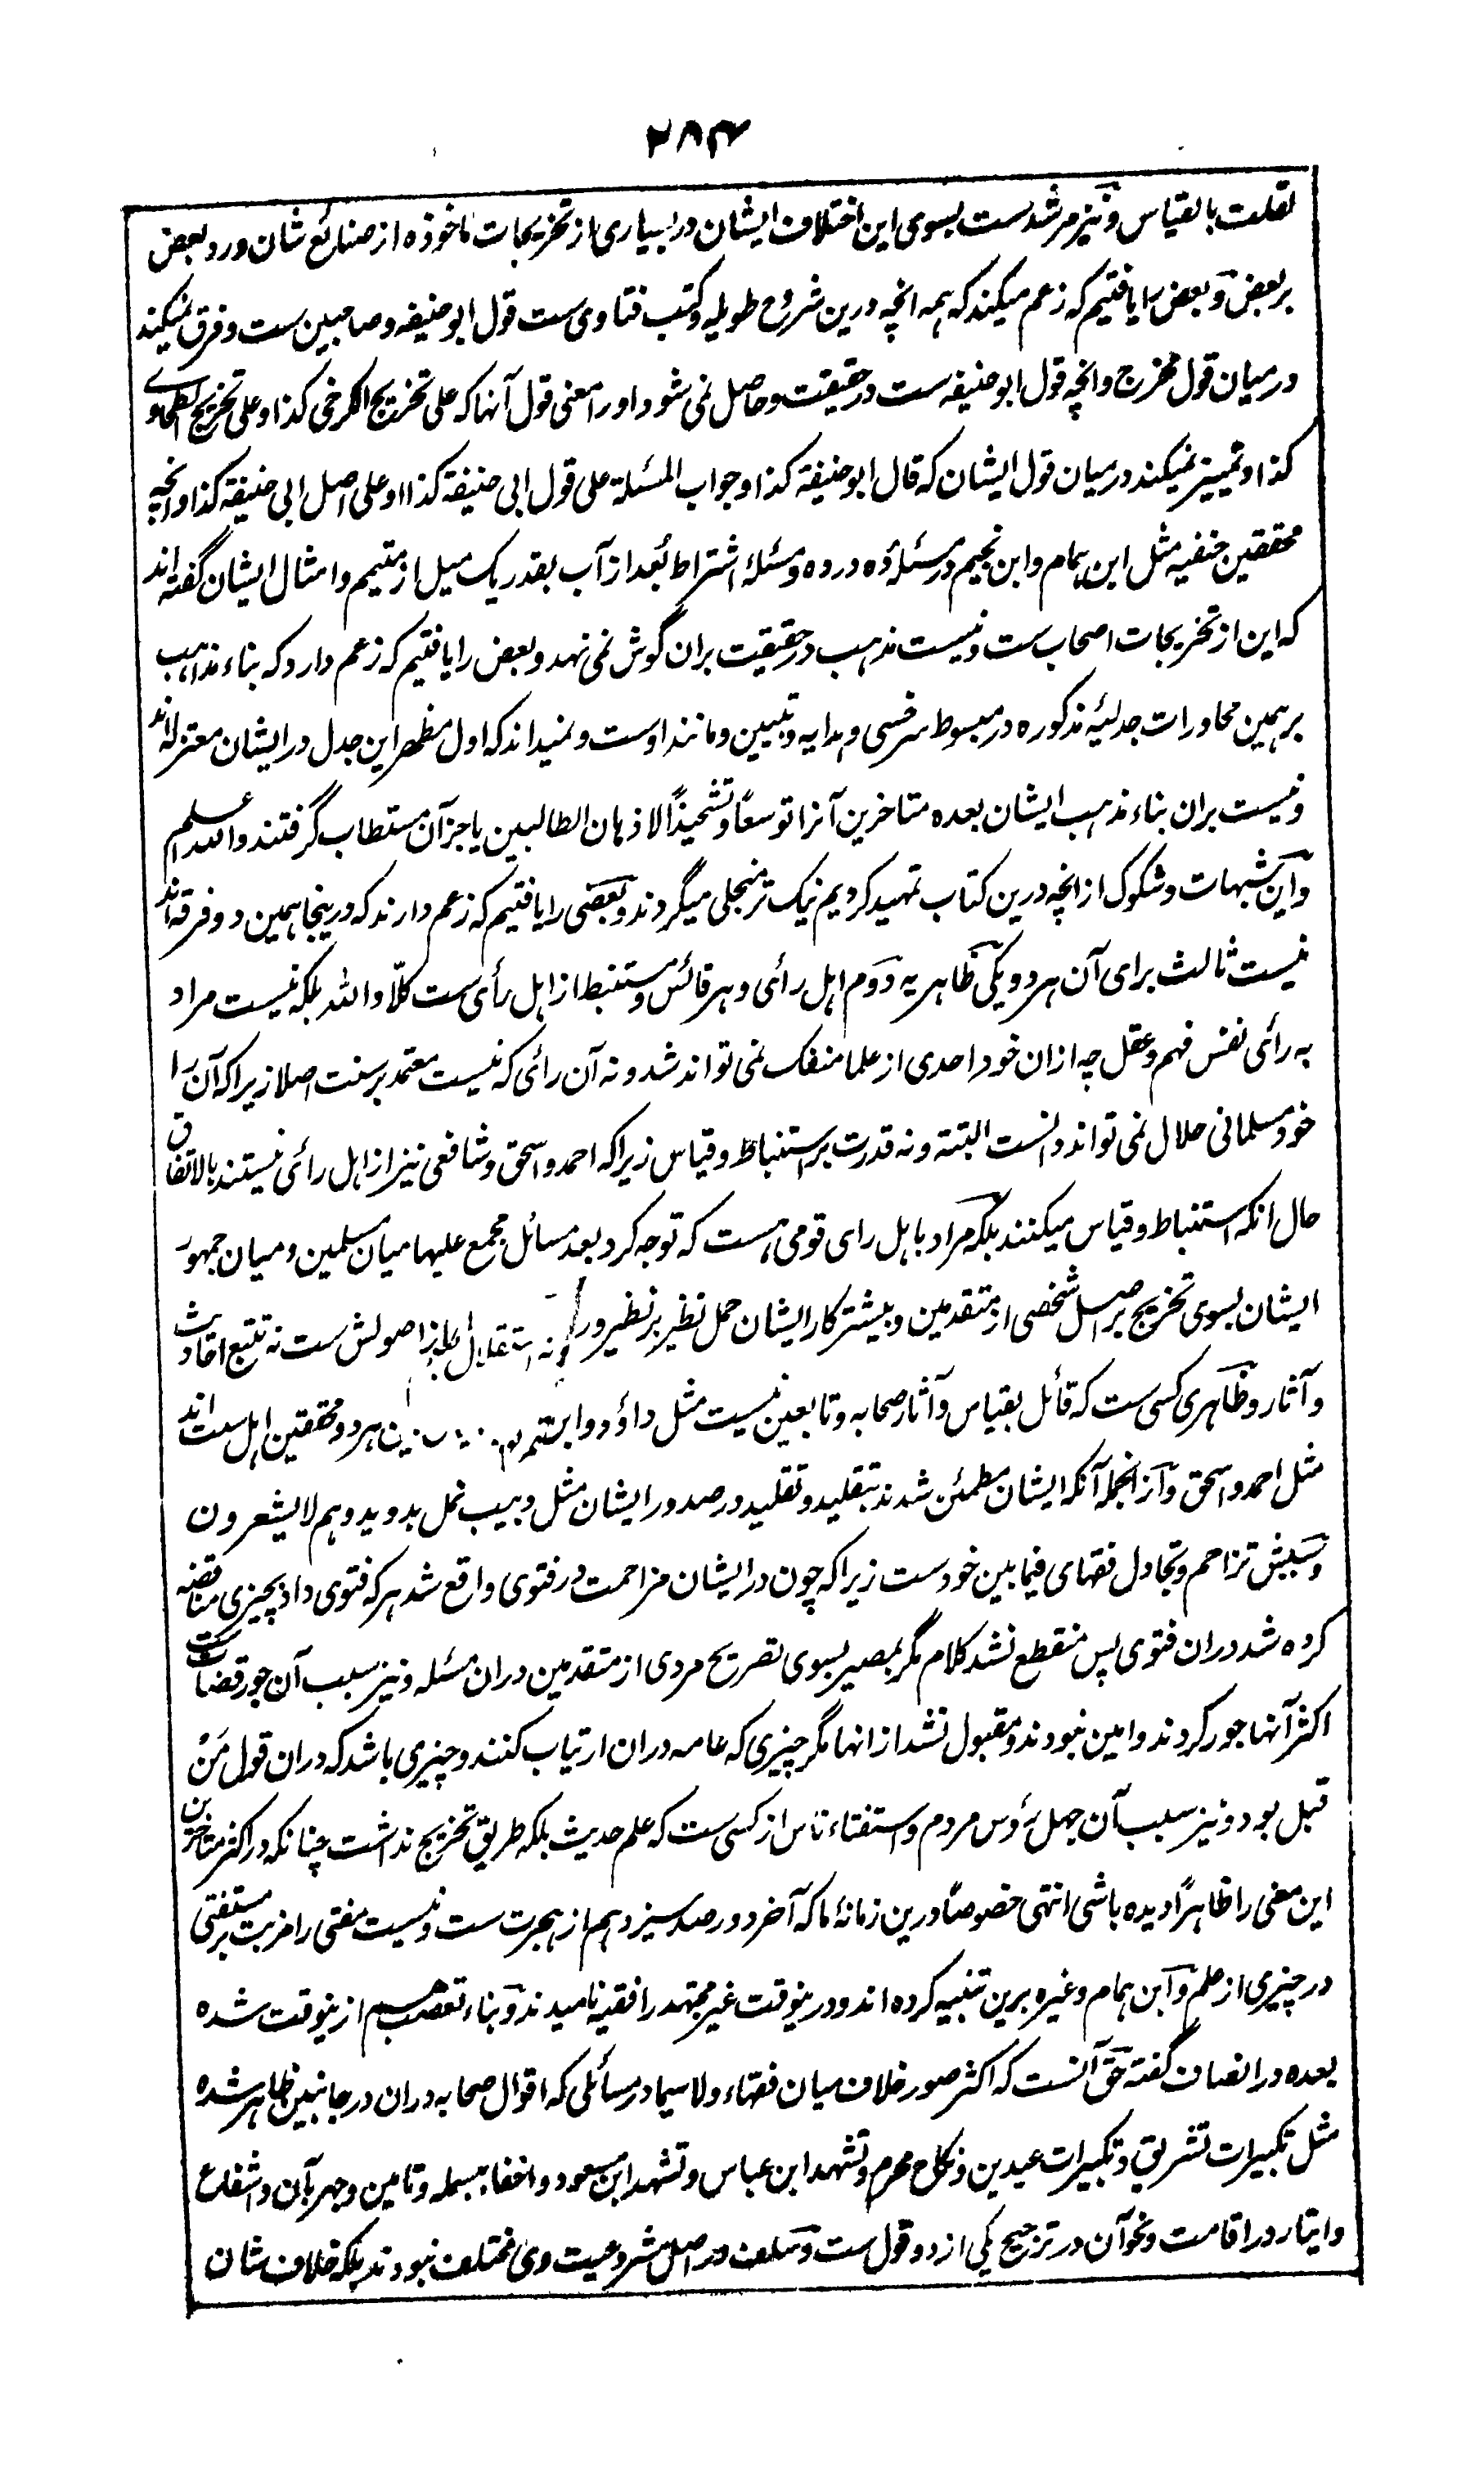 ۲۸۴
تعلت بالقیاس و نیز مرشدست بسوی این اختلاف ایشان در بسیاری از تخریجات ماخوذه از صنائع شان و رد بعض
بر بعض و بعض را یافتیم که زعم میکند که همه انچه درین شروح طویله و کتب فتاوی ست قول ابو حنیفه و صاحبین ست و فرق نمیکند
درمیان قول مخرج و انچه قول ابو حنیفه ست در حقیقت و حاصل نمی شود او را معنی قول آنها که علی تخریج الکرخی کذا و علی تخریج الطحاوے
کذا و تمییز نمیکند درمیان قول ایشان که قال ابو حنیفة کذا و جواب المسئلة علی قول ابی حنیفة کذا او علی اصل ابی حنیفة کذا و انچه
محققین حنفیه مثل ابن همام و ابن نجیم در مسئلهٔ ده در ده و مسئلهٔ اشتراط بُعد از آب بقدر یک میل از متیمم و امثال ایشان گفته اند
که این از تخریجات اصحاب ست و نیست مذهب در حقیقت بران گوش نمی نهد و بعض را یافتیم که زعم دارد که بناء مذاهب
بر همین محاورات جدلیهٔ مذکوره در مبسوط سرخسی و هدایه و تبیین و مانند اوست و نمیداند که اول مظهر این جدل در ایشان معتزله اند
و نیست بران بناء مذهب ایشان بعده متاخرین آنرا توسعاً و تشحیذاً لاذهان الطالبین یا جز آن مستطاب گرفتند والله اعلم
و این شبهات و شکوک از انچه درین کتاب تمهید کردیم نیک تر منجلی میگردند و بعضی را یافتیم که زعم دارند که درینجا همین دو فرقه اند
نیست ثالث برای آن هر دو یکی ظاهریه دوم اهل رأی و هر قائس و مستنبط از اهل رأی ست کلّا والله بلکه نیست مراد
به رأی نفس فهم و عقل چه ازان خود احدی از علما منفک نمی تواند شد و نه آن رائی که نیست معتمد بر سنت اصلا زیرا که آن را
خود مسلمانی حلال نمی تواند دانست البتة و نه قدرت بر استنباط و قیاس زیرا که احمد و اسحق و شافعی نیز از اهل رائی نیستند بالاتفاق
حال انکه استنباط و قیاس میکنند بلکه مراد باهل رای قومی ست که توجه کرد بعد مسائل مجمع علیها میان مسلمین و میان جمهور
ایشان بسوی تخریج بر اصل شخصی از متقدمین و بیشتر کار ایشان حمل نظیر بر نظیر و رد اصولش ست نه تتبع احادیث
و آثار و ظاهری کسی ست که قائل بقیاس و آثار صحابه و تابعین نیست مثل داؤد و ابن هر دو محققین اهل سنت اند
مثل احمد و اسحق و از انجمله آنکه ایشان مطمئن شدند بتقلید و تقلید در صدور ایشان مثل دبیب نمل بدوید و هم لا یشعرون
و سببش تزاحم و تجادل فقهای فیما بین خودست زیرا که چون در ایشان مزاحمت در فتوی واقع شد هر که فتوی داد بچیزی مناقضه
کرده شد دران فتوی پس منقطع نشد کلام مگر بمصیر بسوی تصریح مردی از متقدمین دران مسئله و نیز سبب آن جور قضات ست
اکثر آنها جور کردند و امین نبودند و مقبول نشد از انها مگر چیزی که عامه دران ارتیاب نکنند و چیزی باشد که دران قول مَنْ
قبل بود و نیز سبب آن جهل رؤس مردم و استفتاء ناس از کسی ست که علم حدیث بلکه طریق تخریج نداشت چنانکه در اکثر متاخرین
این معنی را ظاهراً دیده باشی انتهی خصوصاً درین زمانهٔ ما که آخر دور صد سیزدهم از هجرت ست و نیست مفتی را مزیت بر مستفتی
در چیزی از علم و ابن همام و غیره برین تنبیه کرده اند و درینوقت غیر مجتهد را فقیه نامیدند و بناء تعصب هم ازینوقت شده
بعده در انصاف گفته حق آنست که اکثر صور خلاف میان فقهاء و لا سیما در مسائلی که اقوال صحابه دران در جانبین ظاهر شده
مثل تکبیرات تشریق و تکبیرات عیدین و نکاح محرم و تشهد ابن عباس و تشهد ابن مسعود و اخفا بسمله و تامین و جهر بآن و اشفاع
و ایتار در اقامت و نحو آن در ترجیح یکی از دو قول ست و سلف در اصل مشروعیت وی مختلف نبودند بلکه خلاف شان